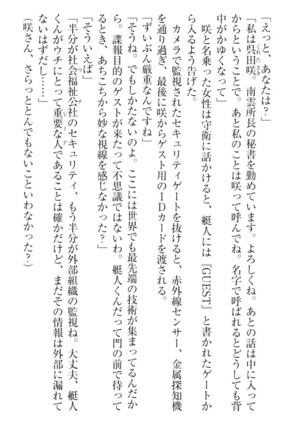 「えっと、あなたは？」
「私は呉田咲。南雲所長の秘書を勤めています。よろしくね。あとの話は中に入って
からということで。あと私のことは咲って呼んでね。名字で呼ばれるとどうしても背
中がかゆくなって」
咲と名乗った女性は守衛に話かけると、艇人には『GUEST』と書かれたゲートか
ら入るよう告げた。
カメラで監視されたセキュリティゲートを抜けると、赤外線センサー、金属探知機
を通り過ぎ、最後に咲からゲスト用のIDカードを渡される。
「ずいぶん厳重なんですね」
「そうね。でもしかたないのよ。ここには世界でも最先端の技術が集まってるんだか
ら。諜報目的のゲストが来たって不思議ではないわ。艇人くんだって門の前で待って
るとき、あちこちから妙な視線を感じなかった？」
「そういえば」
「半分が社会福祉公社のセキュリティ、もう半分が外部組織の監視ね。大丈夫、艇人
くんがウチにとって重要な人であることは確かだけど、まだその情報は外部に漏れて
ないはずだし……」
（咲さん、さらっととんでもないこといわなかった？）